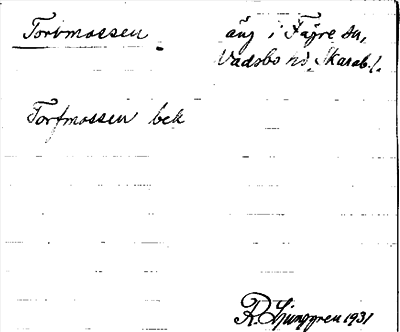 Torvmossen äng i Fägre sn,
Vadsbo hd, Skarab. l.
Torfmossen bek
R. Ljunggren 1931